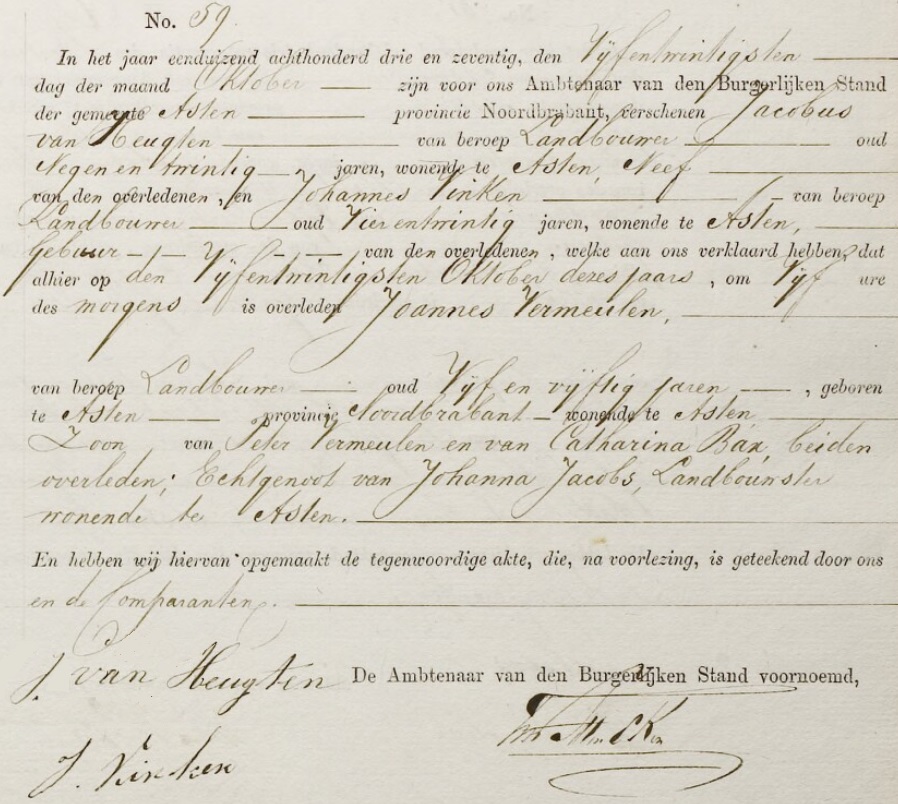 No. 59
In het jaar eenduizend achthonderd drie en zeventig, den Vijfentwintigsten
dag der maand Oktober zijn voor ons Ambtenaar van den Burgerlijken Stand
der gemeente Asten provincie Noordbrabant, verschenen Jacobus
van Heugten van beroep Landbouwer oud
Negen en twintig jaren, wonende te Asten, Neef
van den overledenen, en Johannes Vinken van beroep
Landbouwer oud Vier entwintig jaren, wonende te Asten,
gebuur van den overledenen, welke aan ons verklaard hebben, dat
alhier op den Vijfentwintigsten Oktober dezes jaars, om Vijf ure
des morgens is overleden Joannes Vermeulen,
van beroep Landbouwer oud Vijf en vijftig jaren, geboren
te Asten provincie Noordbrabant wonende te Asten
Zoon van Peter Vermeulen en van Catharina Bax, beiden
overleden; Echtgenoot van Johanna Jacobs, Landbouwster
wonende te Asten.
En hebben wij hiervan opgemaakt de tegenwoordige akte, die, na voorlezing, is geteekend door ons
en de Comparanten.
J. van Heugten De Ambtenaar van den Burgerlijken Stand voornoemd,
J. Vinken